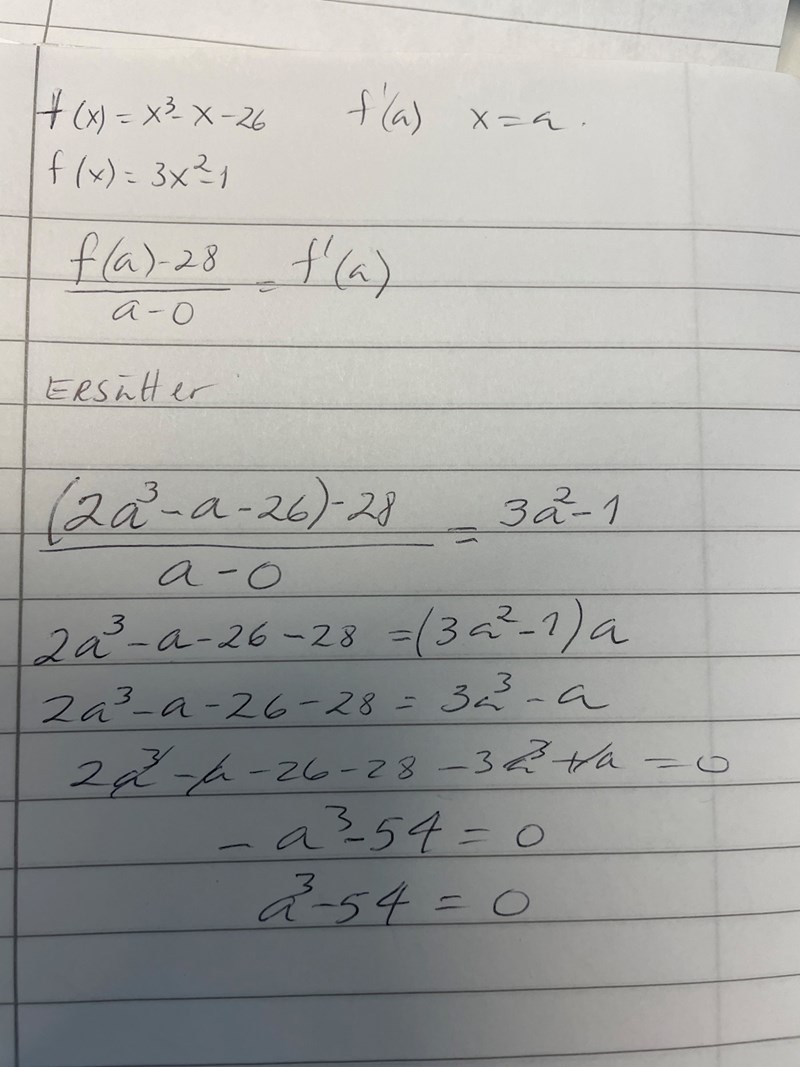 f(x) = x³ - x - 26 f'(a) x = a.
f(x) = 3x² - 1
(f(a) - 28) / (a - 0) = f'(a)
ERSätter
((2a³ - a - 26) - 28) / (a - 0) = 3a² - 1
2a³ - a - 26 - 28 = (3a² - 1)a
2a³ - a - 26 - 28 = 3a³ - a
2a³ - a - 26 - 28 - 3a³ + a = 0
- a³ - 54 = 0
a³ - 54 = 0